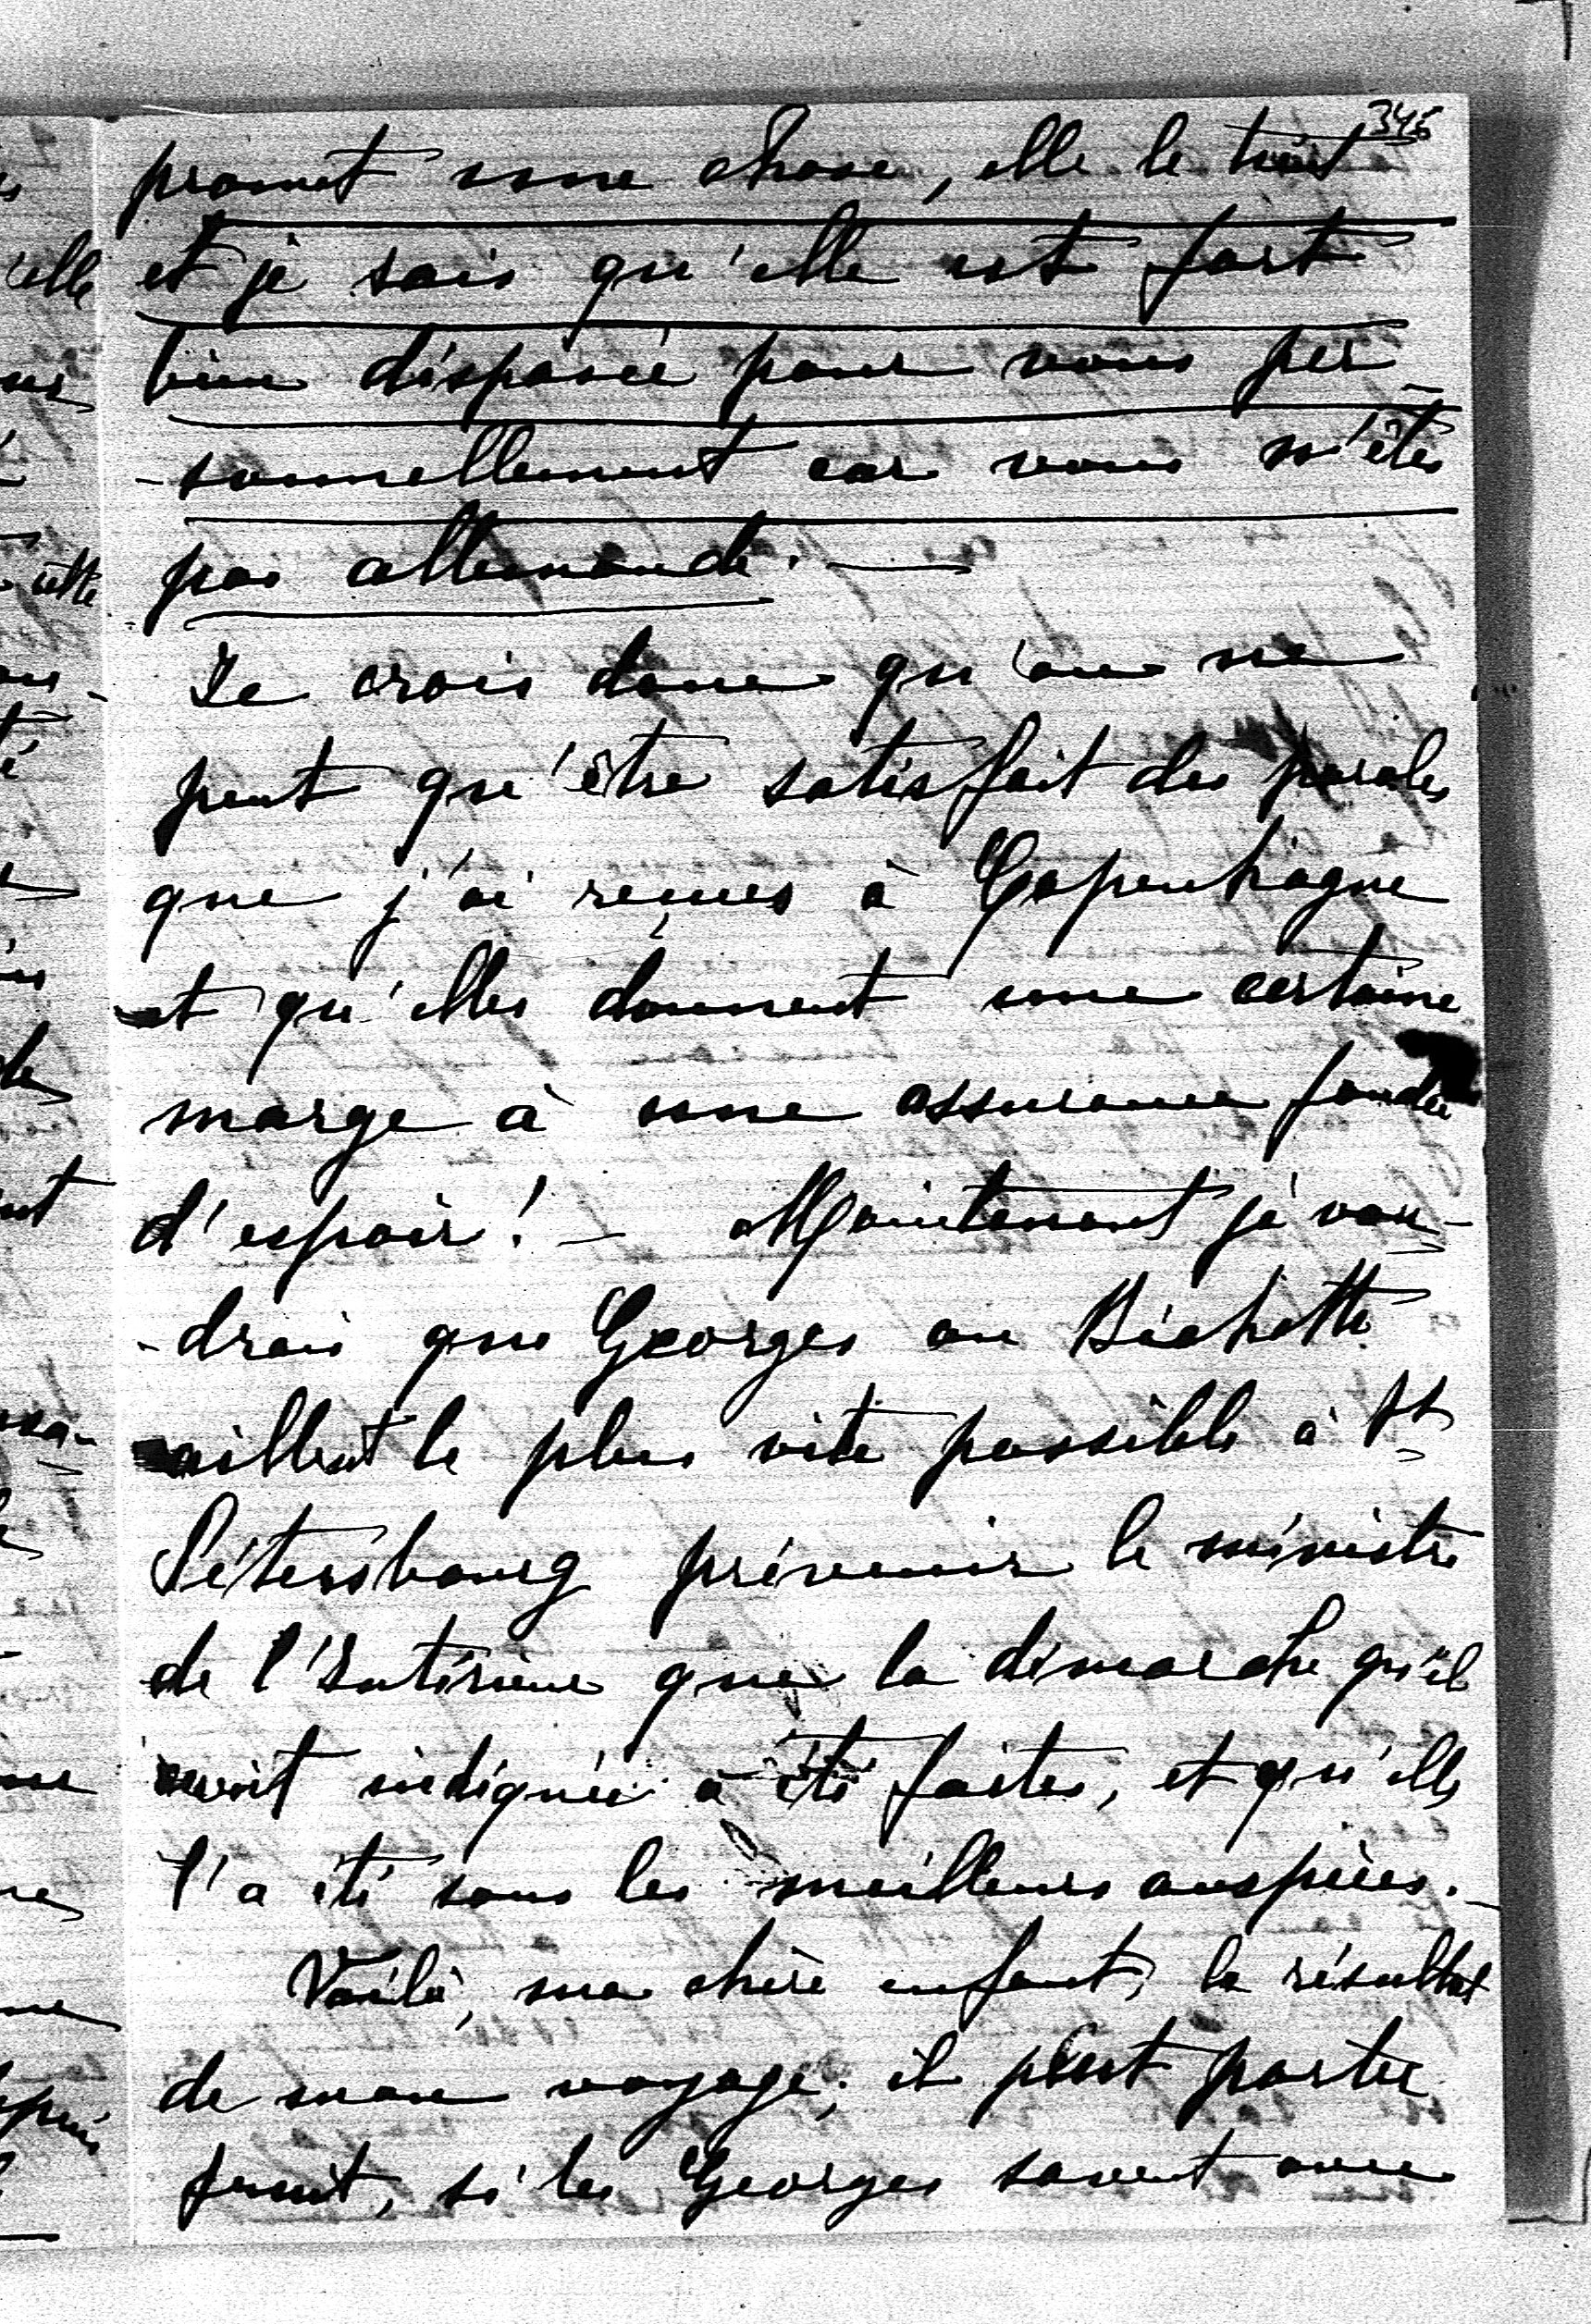 345
promet une chose, elle le tient
et je sais qu'elle est fort
bien disposée pour vous per-
-sonnellement car vous n'êtes
pas allemande. —
Je crois donc qu'on ne
peut qu'être satisfait des paroles
que j'ai reçues à Copenhague
et qu'elles donnent une certaine
marge à une assurance fondée
d'espoir! — Maintenant je vou-
-drais que Georges ou Bichette
aillent le plus vite possible à St
Pétersbourg prévenir le ministre
de l'Intérieur que la démarche qu'il
avait indiquée a été faites, et qu'elle
l'a été sous les meilleurs auspices. —
Voilà, ma chère enfant, le résultat
de mon voyage; il peut porter
fruit, si les Georges savent avec